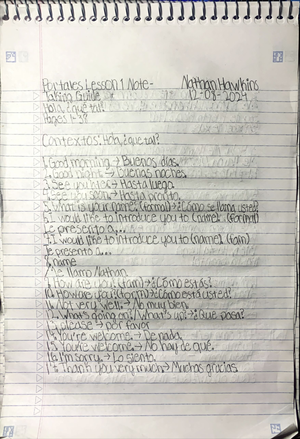 Portales Lesson 1 Note- Nathan Hawkins
Taking Guide 12-08-2024
Hola, ¿qué tal?
Pages 1-37
Contextos: Hola, ¿que tal?
1. Good morning → Buenos días.
2. Good night → buenas noches.
3. See you later → Hasta luego.
4. See you soon → Hasta pronto.
5. What is your name? (formal) → ¿Cómo se llama usted?
6. I would like to introduce you to (name). (formal)
Le presento a...
7. I would like to introduce you to (name). (fam)
Te presento a...
8. name
Me llamo Nathan.
9. How are you? (fam) → ¿Cómo estás?
10. How are you? (formal) → ¿Cómo está usted?
11. Not very well. → No muy bien.
12. What's going on?/What's up? → ¿Qué pasa?
13. please → por favor
14. You're welcome. → De nada.
15. You're welcome. → No hay de qué.
16. I'm sorry. → Lo siento.
17. Thank you very much → Muchas gracias.